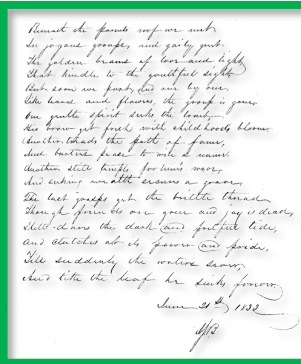 Beneath the parents roof we met
In joyous groups, and gaily greet
The golden beams of love and light
That kindle to the youthful sight
But soon we part, and one by one,
Like leaves and flowers, the group is gone
One gentle spirit seeks the tomb,
His brow yet fresh with childhoods bloom
Another treads the path of fame,
And barters peace to win a name
Another still tempts for
And seeking wealth a grave,
The last grasps yet the brittle thread
Though friends are gone and joy is dead,
Still dares the dark and fretful tide,
And clutches at its power and pride,
Till suddenly the waters sever,
And like the leaf he sinks forever
June 21st 1832